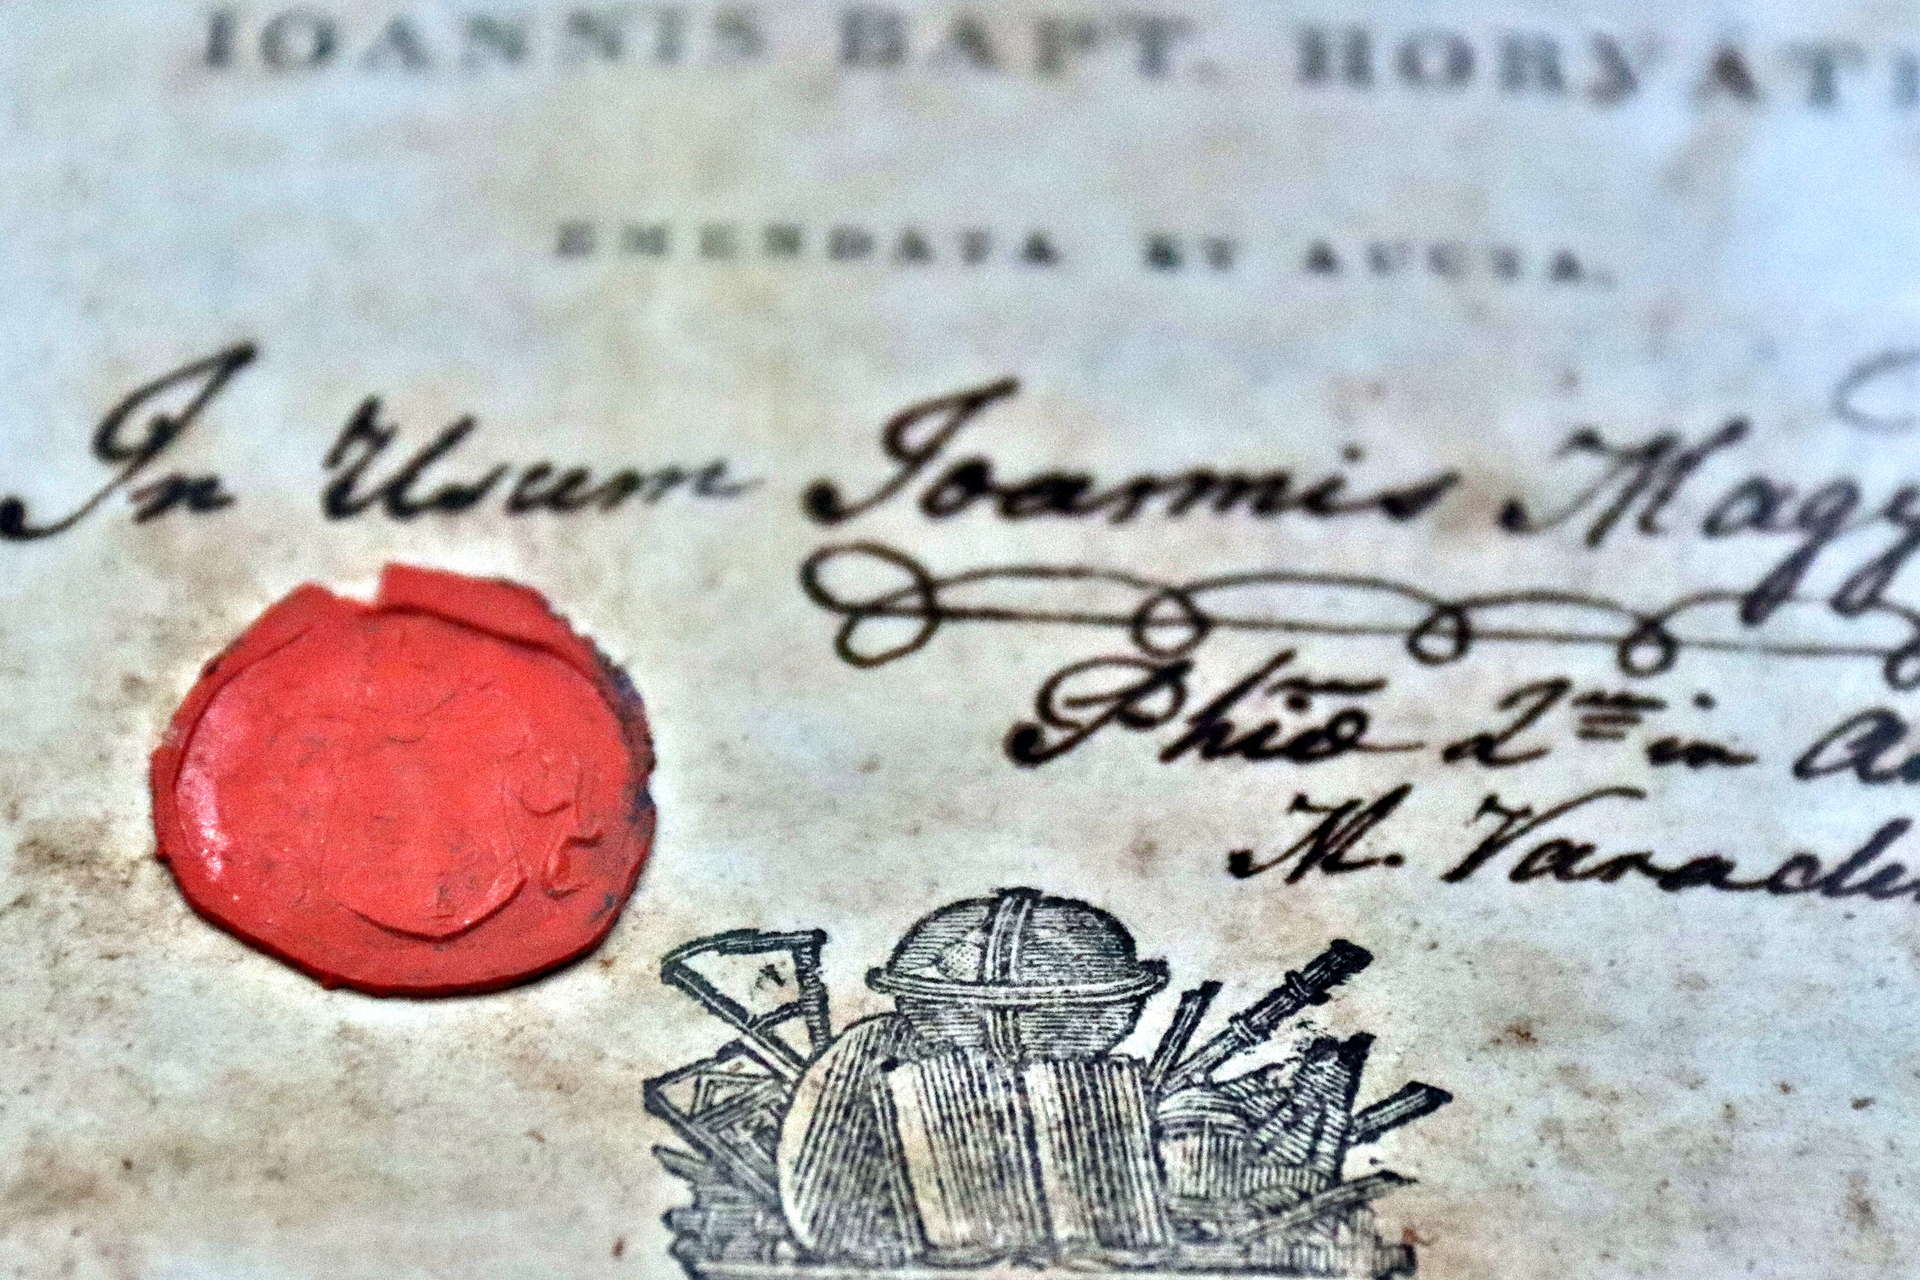 IOANNIS BAPT. HORVATH
EMENDATA ET AUCTA.
In Usum Ioannis Magg
Phiõ 2um in
M. Varad